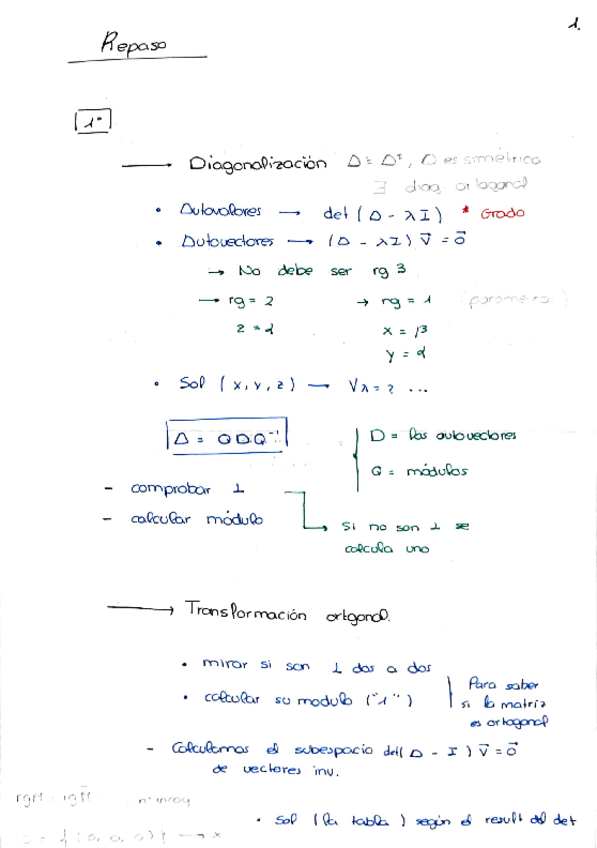 1.
Repaso
1º
→ Diagonalización A = Aᵗ, A es simétrica
∃ diag ortogonal
• Autovalores → det (A - λI) * Grado
• Autovectores → (A - λI) v⃗ = o⃗
→ No debe ser rg 3
→ rg = 2 → rg = 1 (parametro)
z = α x = β
y = α
• Sol (x, y, z) → Vλ = ? ...
A = QDQ⁻¹ D = los autovectores
Q = módulos
- comprobar ⊥
- calcular módulo
→ Si no son ⊥ se
calcula uno
→ Transformación ortgonal.
• mirar si son ⊥ dos a dos
• calcular su modulo ("1") Para saber
si la matriz
es ortogonal
- Calculamos el subespacio det(A - I) v⃗ = o⃗
de vectores inv.
rgM = rgM̄
• Sol (la tabla) según el result del det